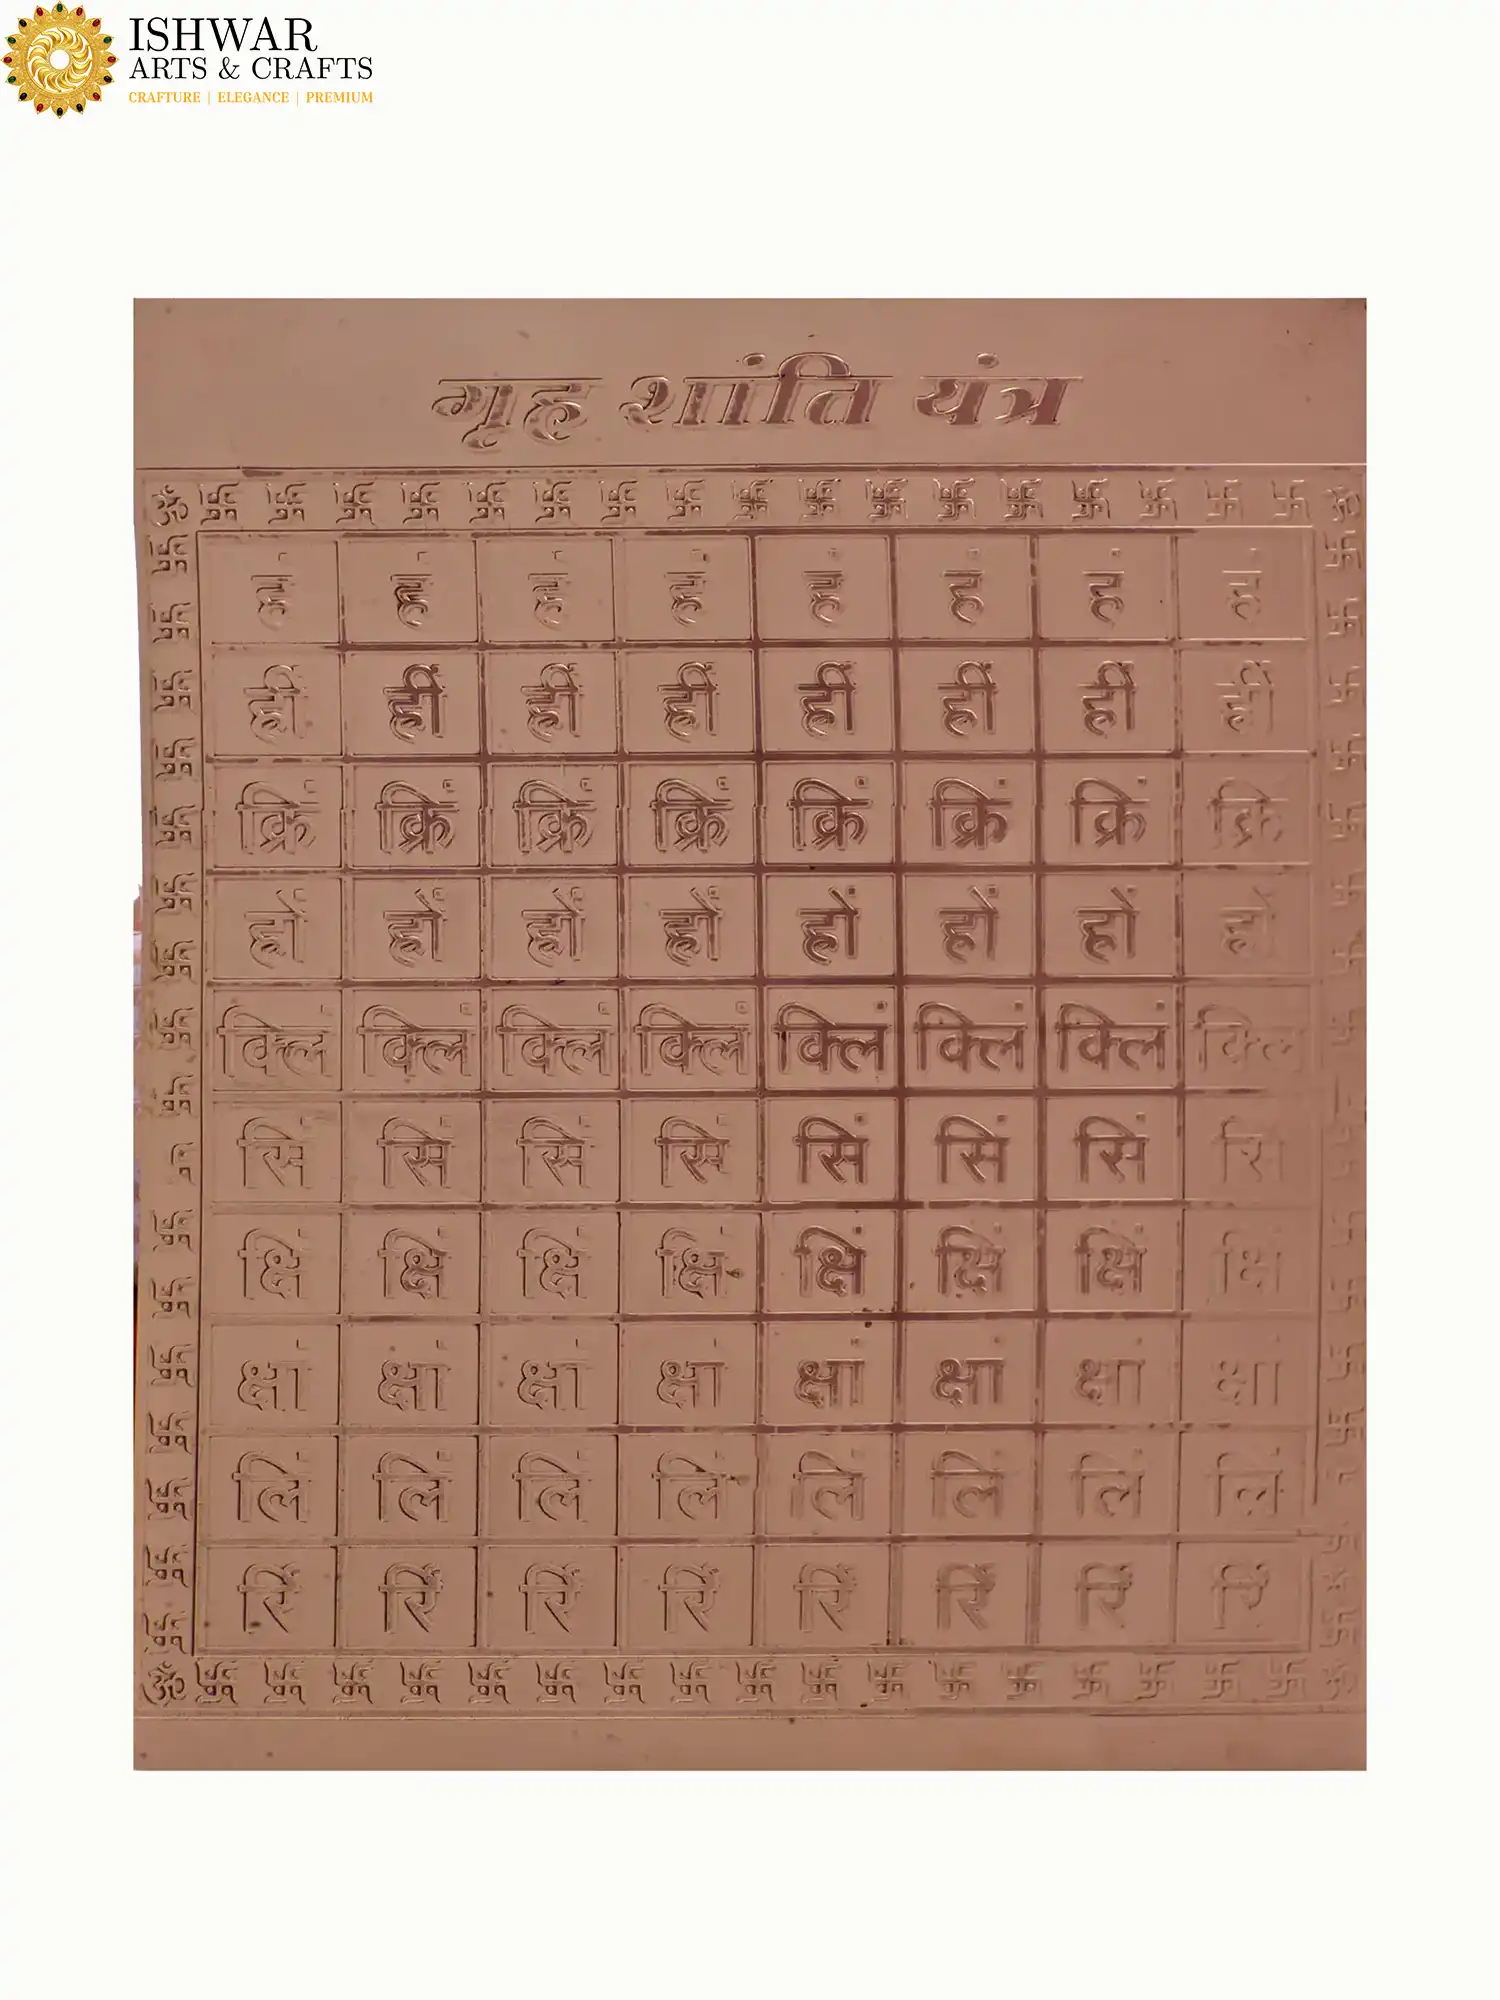 ISHWAR
ARTS & CRAFTS
CRAFTURE | ELEGANCE | PREMIUM
गृह शांति यंत्र
ह्रीं ह्रीं ह्रीं ह्रीं ह्रीं ह्रीं ह्रीं ह्रीं
क्रिं क्रिं क्रिं क्रिं क्रिं क्रिं क्रिं क्रिं
ह्रों ह्रों ह्रों ह्रों ह्रों ह्रों ह्रों ह्रों
क्लिं क्लिं क्लिं क्लिं क्लिं क्लिं क्लिं क्लिं
सिं सिं सिं सिं सिं सिं सिं सिं
क्षिं क्षिं क्षिं क्षिं क्षिं क्षिं क्षिं क्षिं
क्षां क्षां क्षां क्षां क्षां क्षां क्षां क्षां
लिं लिं लिं लिं लिं लिं लिं लिं
रिं रिं रिं रिं रिं रिं रिं रिं